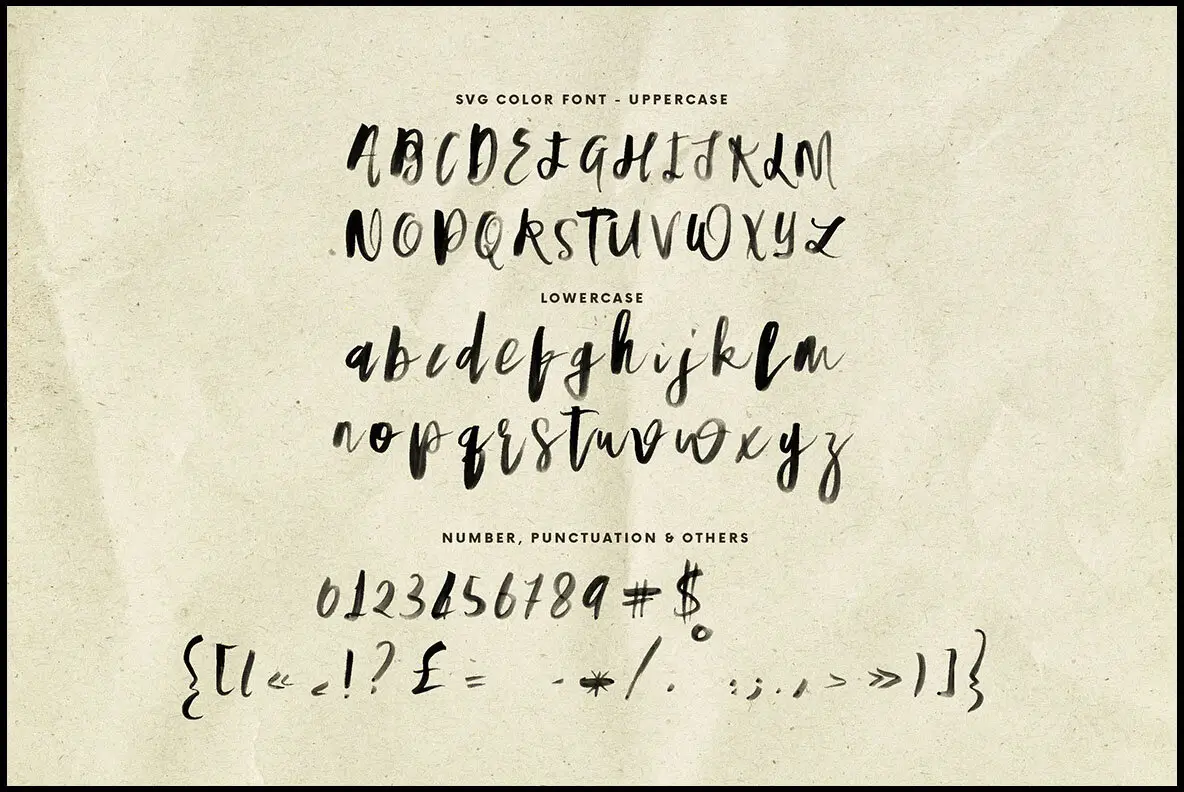 SVG COLOR FONT - UPPERCASE
ABCDEFGHIJKLM
NOPQRSTUVWXYZ
LOWERCASE
abcdefghijklm
nopqrstuvwxyz
NUMBER, PUNCTUATION & OTHERS
0123456789#$
{[(«‹!?£= -*/. :;.,›»)]}